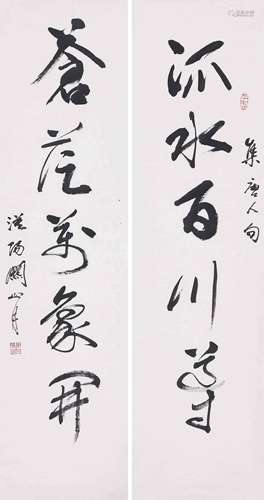 水百川尊
集唐人句
蒼茫萬象開
漠陽關山月